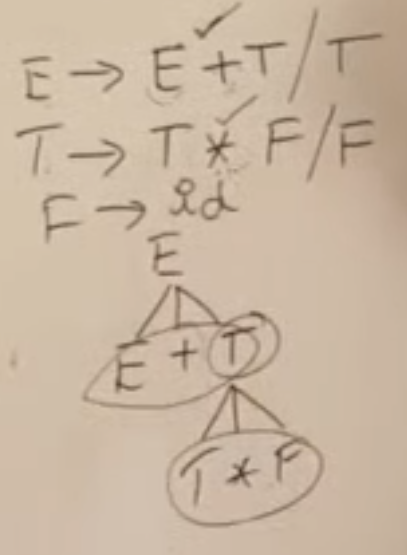 E → E + T / T
T → T * F / F
F → id
E
E + T
T * F